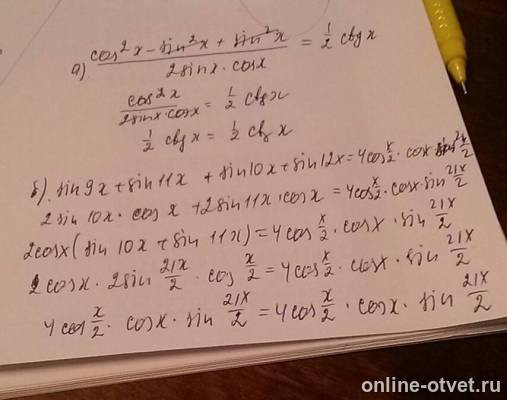 а) (cos²x - sin²x + sin²x)/(2sinx · cosx) = 1/2 ctgx
cos²x/(2sinx·cosx) = 1/2 ctgx
1/2 ctgx = 1/2 ctgx
б) sin9x + sin11x + sin10x + sin12x = 4cos x/2 · cosx · sin 21x/2
2sin10x · cosx + 2sin11x · cosx = 4cos x/2 · cosx · sin 21x/2
2cosx (sin10x + sin11x) = 4cos x/2 · cosx · sin 21x/2
2cosx · 2sin 21x/2 · cos x/2 = 4cos x/2 · cosx · sin 21x/2
4cos x/2 · cosx · sin 21x/2 = 4cos x/2 · cosx · sin 21x/2
online-otvet.ru